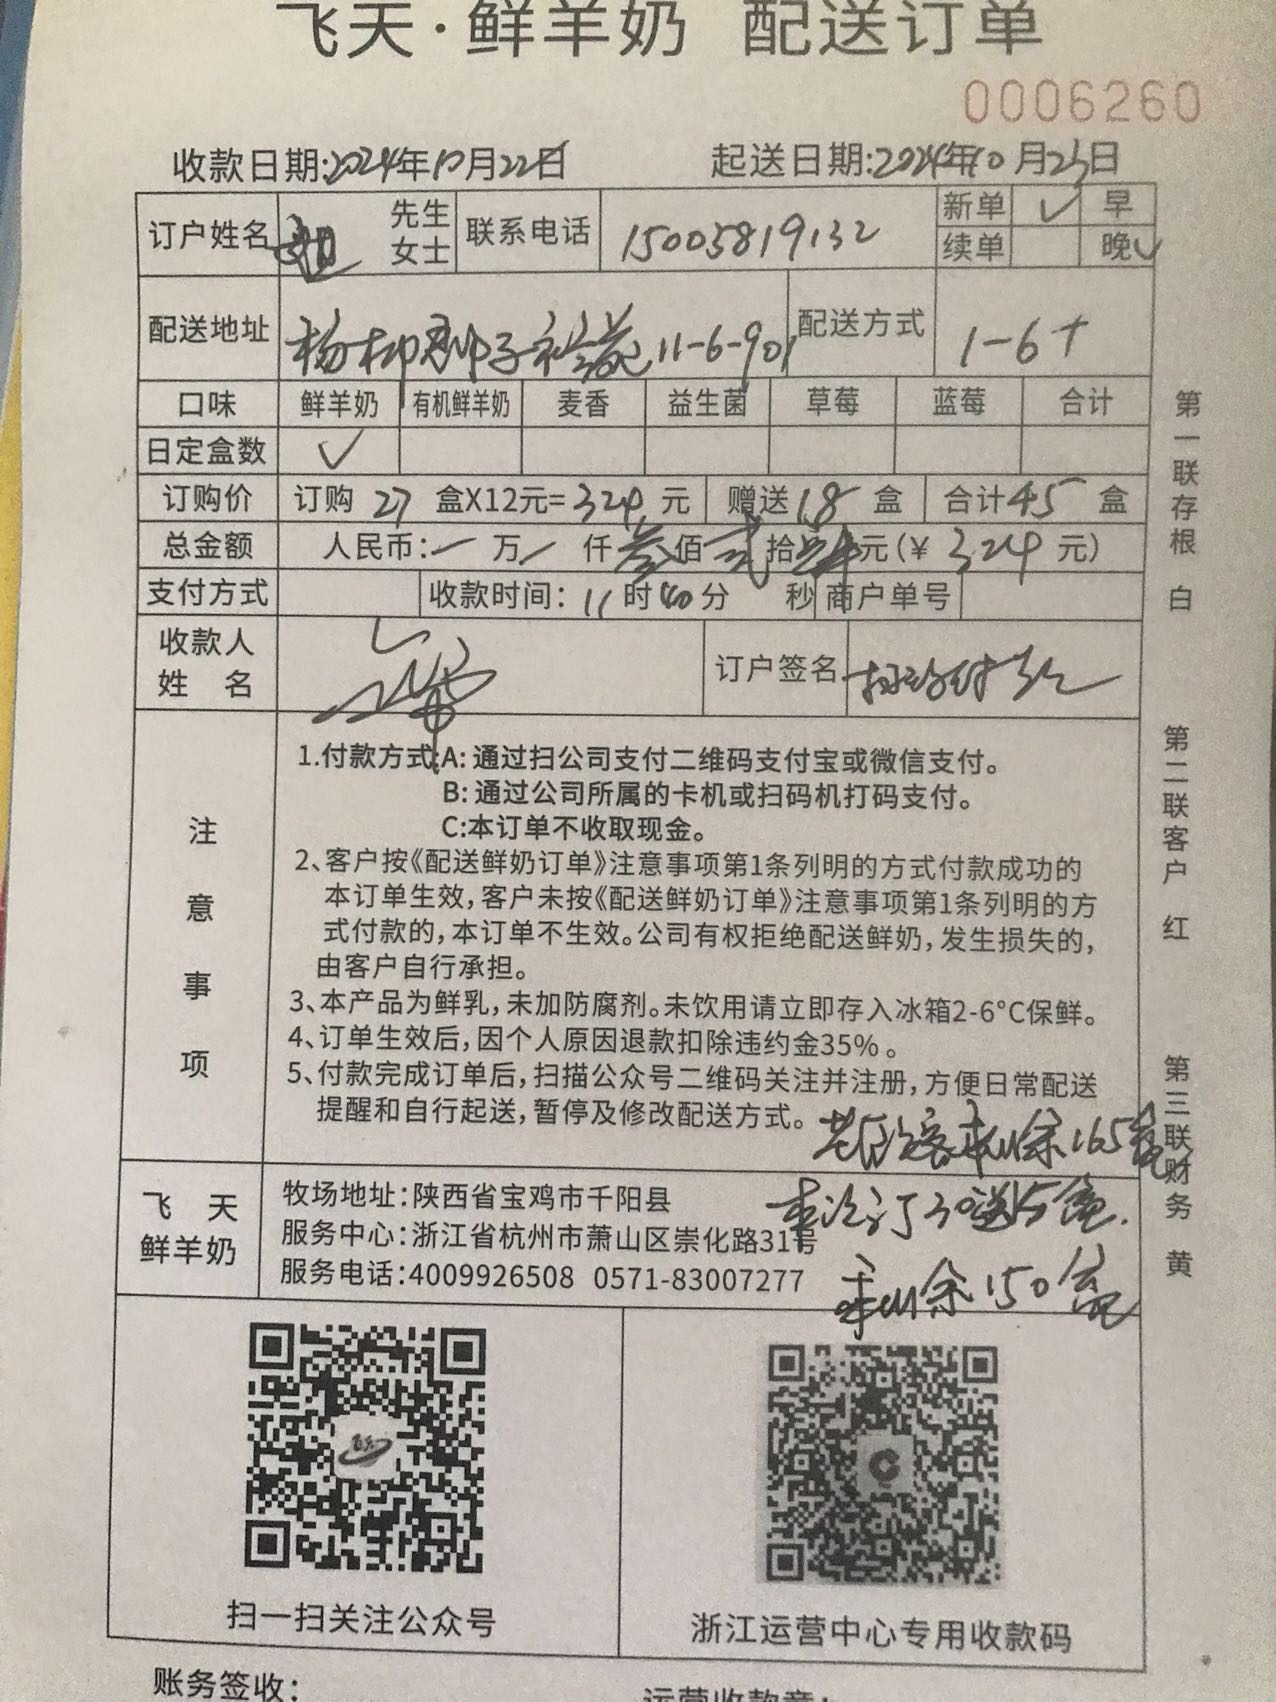 飞天·鲜羊奶 配送订单
0006260
收款日期:2024年10月22日 起送日期:2024年10月23日
订户姓名 先生 女士 联系电话 15005819132 新单 ✓ 早
续单 晚✓
配送地址 杨柳郡 11-6-901 配送方式 1-6+
口味 鲜羊奶 有机鲜羊奶 麦香 益生菌 草莓 蓝莓 合计
日定盒数 ✓
订购价 订购 27 盒X12元=324 元 赠送 18 盒 合计45 盒
总金额 人民币:一万/仟叁佰贰拾肆元(¥ 324 元)
支付方式 收款时间: 11时40分 秒 商户单号
收款人
姓 名
订户签名 扫码付款
注意事项
1.付款方式:A:通过扫公司支付二维码支付宝或微信支付。
B:通过公司所属的卡机或扫码机打码支付。
C:本订单不收取现金。
2、客户按《配送鲜奶订单》注意事项第1条列明的方式付款成功的
本订单生效,客户未按《配送鲜奶订单》注意事项第1条列明的方
式付款的,本订单不生效。公司有权拒绝配送鲜奶,发生损失的,
由客户自行承担。
3、本产品为鲜乳,未加防腐剂。未饮用请立即存入冰箱2-6°C保鲜。
4、订单生效后,因个人原因退款扣除违约金35%。
5、付款完成订单后,扫描公众号二维码关注并注册,方便日常配送
提醒和自行起送,暂停及修改配送方式。
余165盒
本次订30送15盒.
余150盒
飞 天
鲜羊奶
牧场地址:陕西省宝鸡市千阳县
服务中心:浙江省杭州市萧山区崇化路31号
服务电话:4009926508 0571-83007277
扫一扫关注公众号
浙江运营中心专用收款码
账务签收:
运营收款章:
第一联存根 白
第二联客户 红
第三联财务 黄